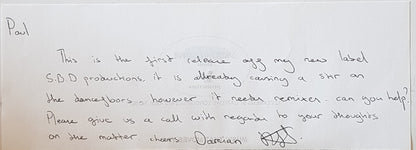 Paul
This is the first release off my new label
S.B.D productions. it is already causing a stir on
the dancefloors, however it needs remixes. can you help?
Please give us a call with regards to your thoughts
on the matter cheers Damian